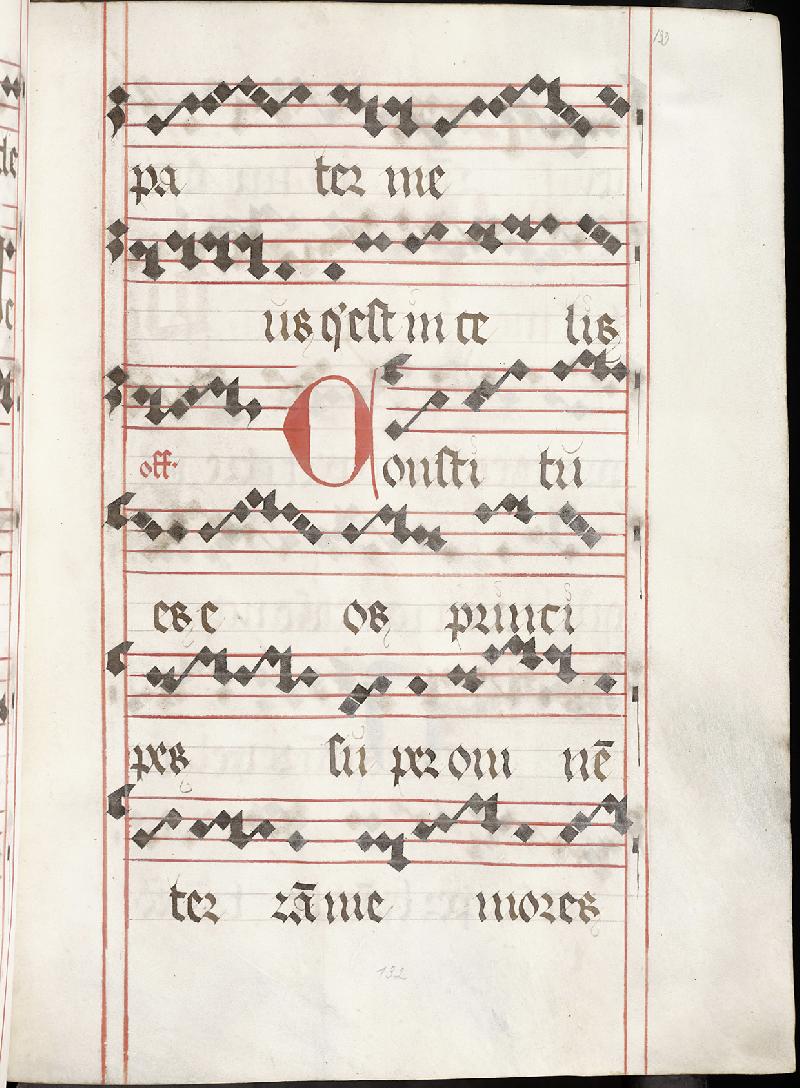 133
pa ter me
us q' est in ce lis
off. Consti tu
es e os princi
pes su per om nē
ter rā me mores
132